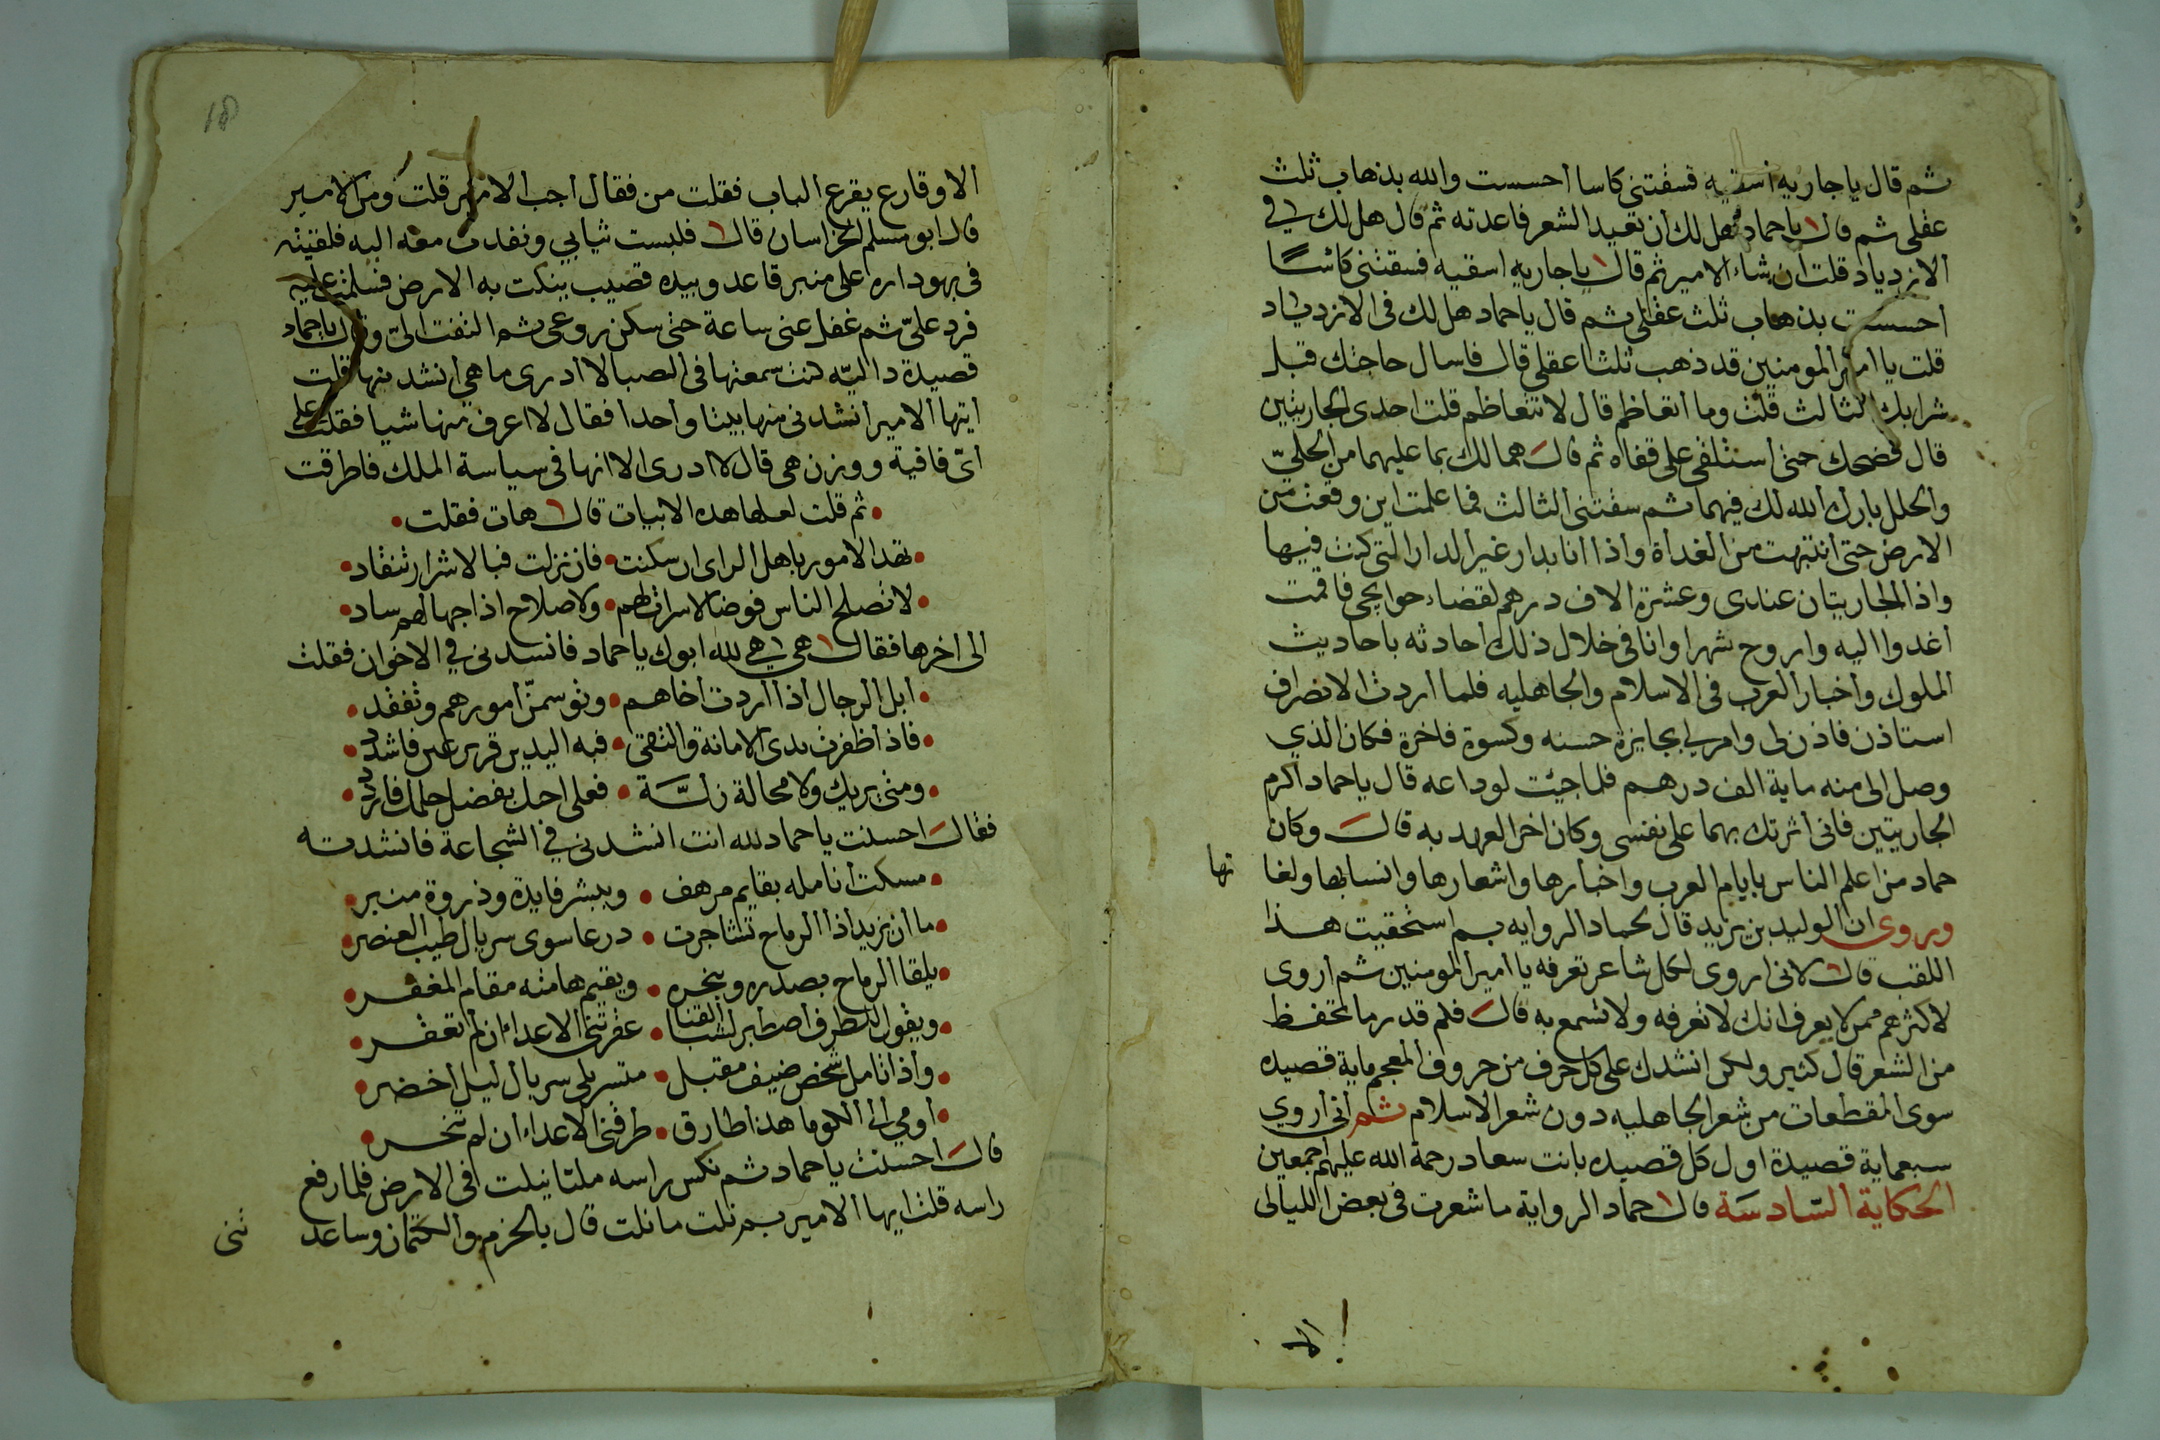 ثم قال يا جاريه اسقيه فسقتنى كاسا أحسست والله بذهاب ثلث
عقلى ثم قال يا حماد هل لك أن تعيد الشعر فاعدته ثم قال هل لك في
الازدياد قلت ان شاء الامير ثم قال يا جاريه اسقيه فسقتنى كاسًا
أحسست بذهاب ثلث عقلى ثم قال يا حماد هل لك فى الازدياد
قلت يا امير المومنين قد ذهب ثلثا عقلى قال فاسال حاجتك قبل
شرابك الثالث قلت وما أتعاظم قال لا تتعاظم قلت احدى الجاريتين
قال فضحك حتى أستلقى على قفاه ثم قال هما لك بما عليهما من الحليّ
والحلل بارك الله لك فيهما ثم سقتنى الثالث فما علمت اين وقعت من
الارض حتى أنتبهت من الغداة واذا أنا بدار غير الدار التى كنت فيها
واذا الجاريتان عندى وعشرة الاف درهم لقضاء حوايجى فاقمت
أغدوا اليه واروح شهرا وانا فى خلال ذلك أحادثه باحاديث
الملوك وأخبار العرب فى الاسلام والجاهليه فلما أردت الانصراف
استاذن فاذن لى وامر لي بجايزة حسنه وكسوة فاخرة فكان الذي
وصل الى منه ماية الف درهم فلما جيت لوداعه قال يا حماد اكرم
الجاريتين فانى أثرتك بهما على نفسى وكان اخر العهد به قال وكان
حماد من اعلم الناس بايام العرب واخبارها واشعارها وانسابها ولغا تها
وروى ان الوليد بن يزيد قال لحماد الروايه بم استحقيت هذا
اللقب قال لانى اروى لكل شاعر تعرفه يا أمير المومنين ثم أروى
لاكثرهم ممن لا يعرف انك لا تعرفه ولا تسمع به قال فلم قدر ما تحفظ
من الشعر قال كثير ولكن انشدك على كل حرف من حروف المعجم ماية قصيده
سوى المقطعات من شعر الجاهليه دون شعر الاسلام ثم أنى أروي
سبعماية قصيدة اول كل قصيده بانت سعاد رحمة الله عليهم أجمعين
الحكاية السّادسَة قال حماد الرواية ما شعرت فى بعض الليالى
الا
الا وقارع يقرع الباب فقلت من فقال أجب الامير قلت ومن الامير
قال ابو مسلم الخراسان قال فلبست ثيابي ونفدت معه اليه فلقيته
فى بهو داره على منبر قاعد وبيده قضيب ينكت به الارض فسلمت عليه
فرد علىّ ثم غفل عنى ساعة حتى سكن روعى ثم التفت الىّ وقال يا حماد
قصيدة داليّه كنت سمعتها فى الصبا لا أدرى ما هى أنشد منها قلت
أيتها الامير أنشدنى منها بيتا وأحدا فقال لا اعرف منها شيا فقلت على
أىّ قافية ووزن هى قال لا ادرى الا انها فى سياسة الملك فاطرقت
ثم قلت لعلها هذه الابيات قال هات فقلت
تهدا الامور باهل الراى ان سكنت • فان نزلت فبالاشرار تنقاد
لا تصلح الناس فوضا لاسراة لهم • ولا صلاح اذا جهالهم ساد
الى اخرها فقال هى هي لله ابوك يا حماد فانشدنى في الاخوان فقلت
أبل الرجال اذا أردت أخاهم • وتوسمنّ أمورهم وتفقد
فاذا ظفرت بدى الامانة والتقى • فبه اليدين قرير عين فاشدد
ومتى يريك ولا محالة زلّة • فعلى احل بفضل حلمك فاردد
فقال احسنت يا حماد لله انت انشدنى في الشجاعة فانشدته
مسكت أنامله بقايم مرهف • وببشر فايدة وذروة منبر
ما أن يزيد اذا الرماح تشاجرت • درعا سوى سربال طيب العنصر
يلقا الرماح بصدره وبنحره • ويقيم هامته مقام المغفر
ويقول للطرف أصطبر لشبا القنا • عقرتنى الاعداء ان لم تعقر
واذا تامل شخص ضيف مقبل • متسربل سربال ليل أخضر
أومي الى الكوما هذا طارق • طرقتى الاعداء ان لم تنحر
قال احسنت يا حماد ثم نكس راسه مليّا ينكت فى الارض فلما رفع
راسه قلت ايها الامير بم نلت ما نلت قال بالحزم والكتمان وساعد
تنى